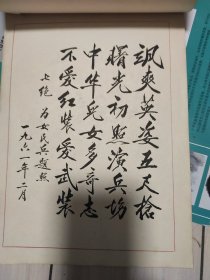 飒爽英姿五尺枪
曙光初照演兵场
中华儿女多奇志
不爱红装爱武装
七绝 为女民兵题照
一九六一年二月